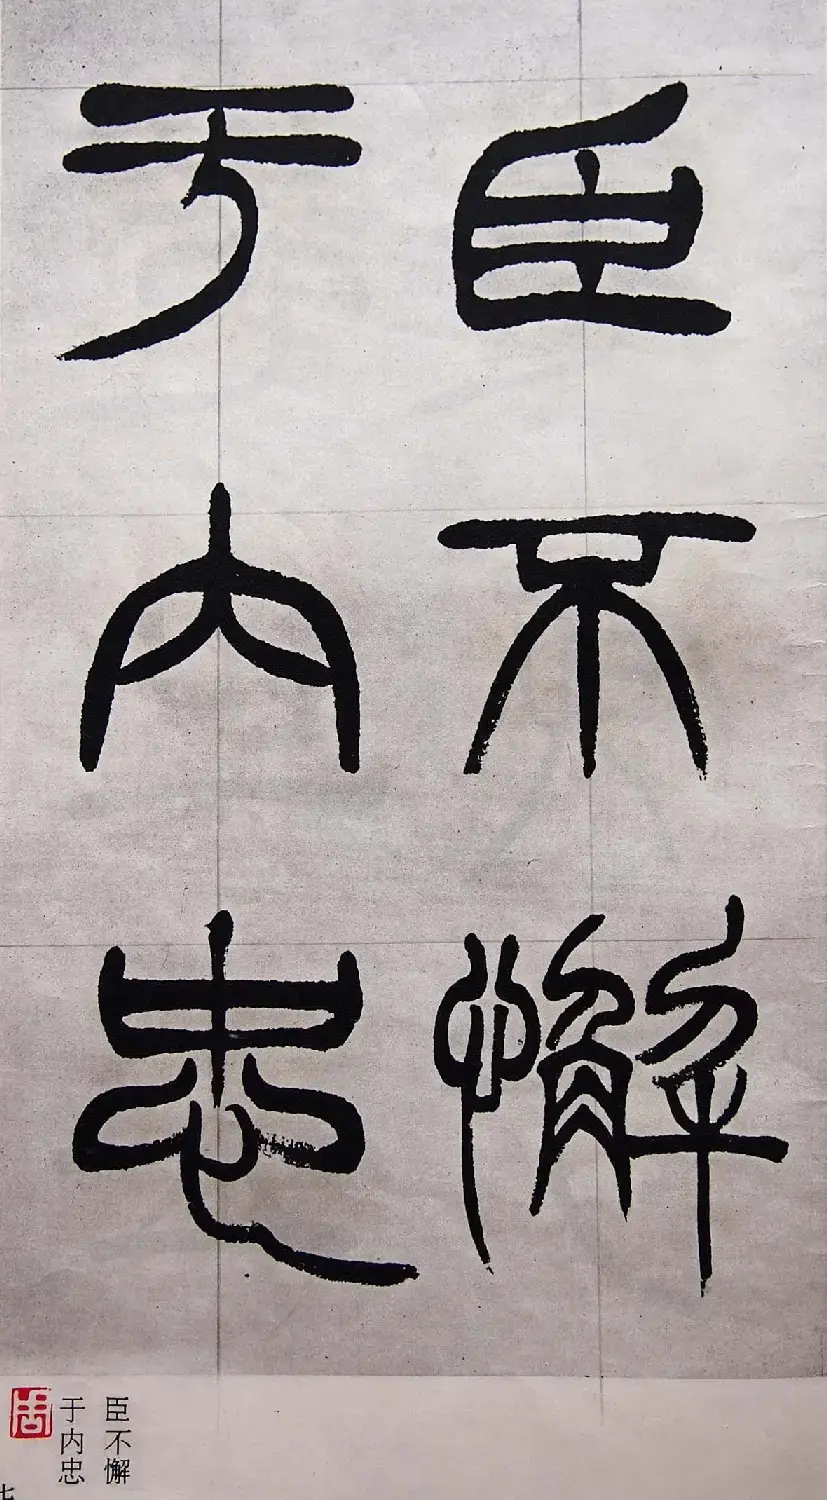 臣不懈
于内忠
臣不懈
于内忠
七